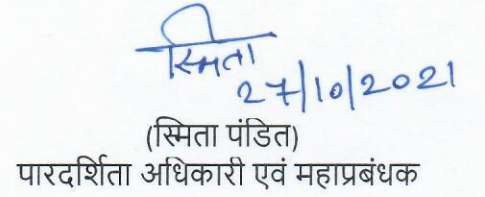 स्मिता
27/10/2021
(स्मिता पंडित)
पारदर्शिता अधिकारी एवं महाप्रबंधक